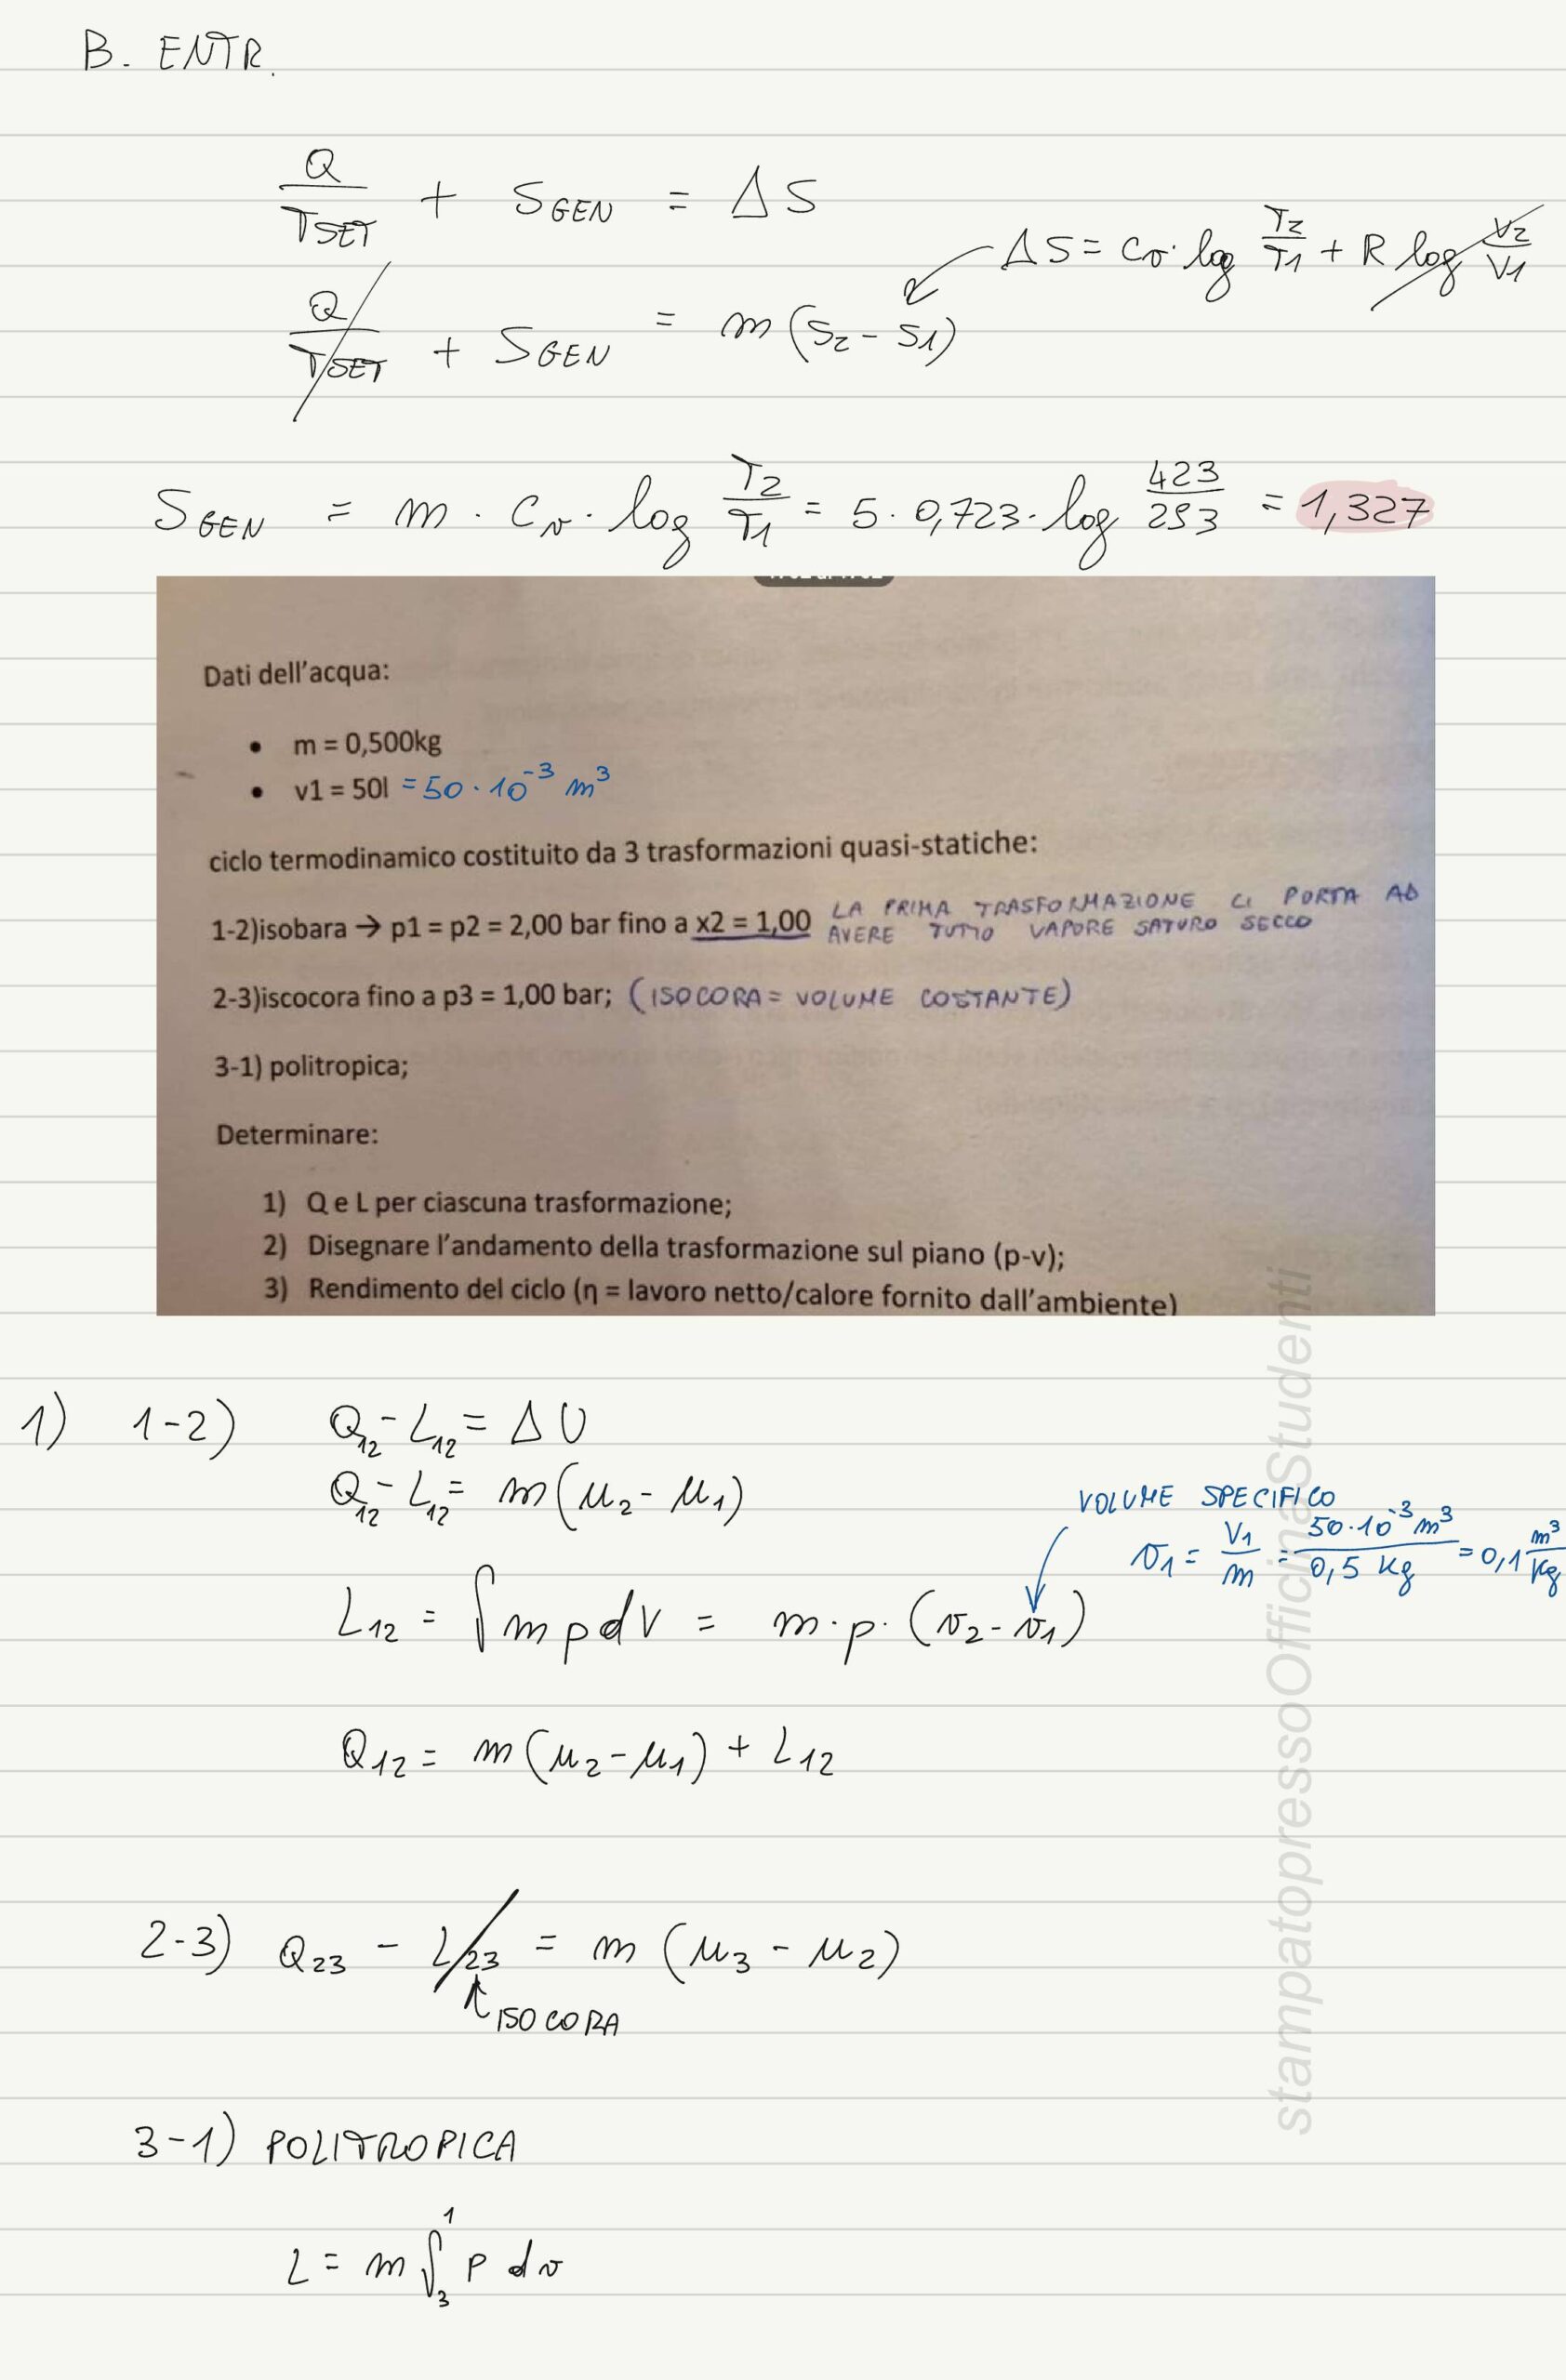 B. ENTR.
Q/TSET + SGEN = ΔS
ΔS = cv · log T2/T1 + R log V2/V1
Q/TSET + SGEN = m (s2 - s1)
SGEN = m · cv · log T2/T1 = 5 · 0,723 · log 423/293 = 1,327
Dati dell'acqua:
• m = 0,500kg
• v1 = 50l = 50 · 10⁻³ m³
ciclo termodinamico costituito da 3 trasformazioni quasi-statiche:
1-2)isobara → p1 = p2 = 2,00 bar fino a x2 = 1,00 LA PRIMA TRASFORMAZIONE CI PORTA AD
AVERE TUTTO VAPORE SATURO SECCO
2-3)iscocora fino a p3 = 1,00 bar; (ISOCORA = VOLUME COSTANTE)
3-1) politropica;
Determinare:
1) Q e L per ciascuna trasformazione;
2) Disegnare l'andamento della trasformazione sul piano (p-v);
3) Rendimento del ciclo (η = lavoro netto/calore fornito dall'ambiente)
1) 1-2) Q12 - L12 = ΔU
Q12 - L12 = m (u2 - u1)
VOLUME SPECIFICO
v1 = V1/m = 50·10⁻³ m³/0,5 kg = 0,1 m³/kg
L12 = ∫ m p dV = m · p · (v2 - v1)
Q12 = m (u2 - u1) + L12
2-3) Q23 - L23 = m (u3 - u2)
ISOCORA
3-1) POLITROPICA
L = m ∫₃¹ p dv
stampatopressoOfficinaStudenti